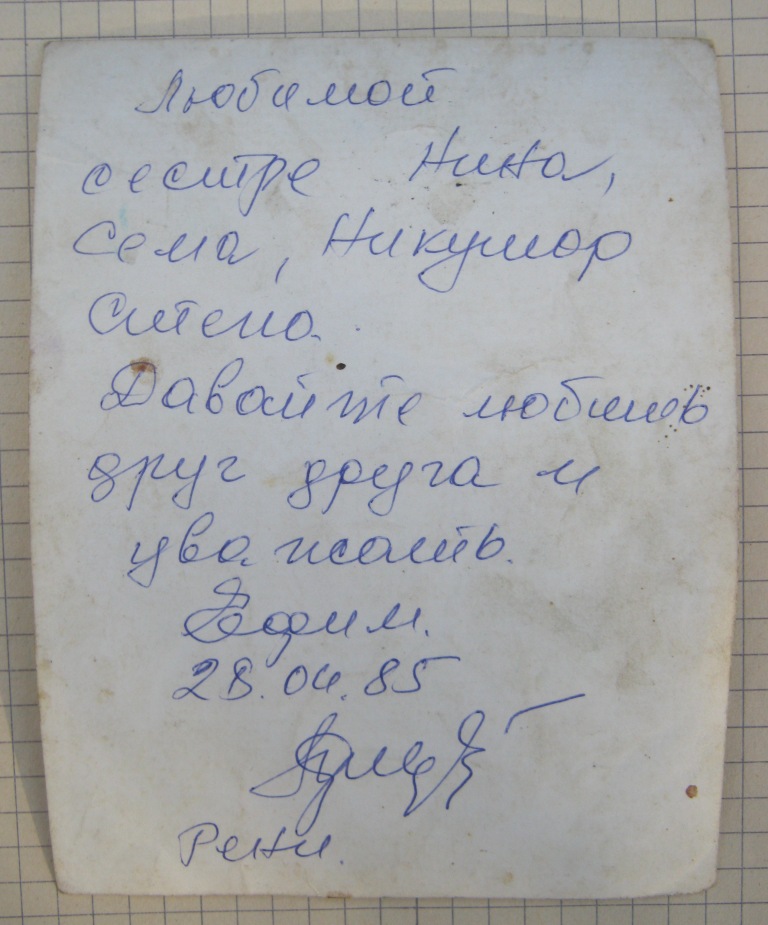 Любимой
сестре Нина,
Сема, Никушор
Степа.
Давайте любить
друг друга и
уважать.
Ефим.
28.04.85
Рени.